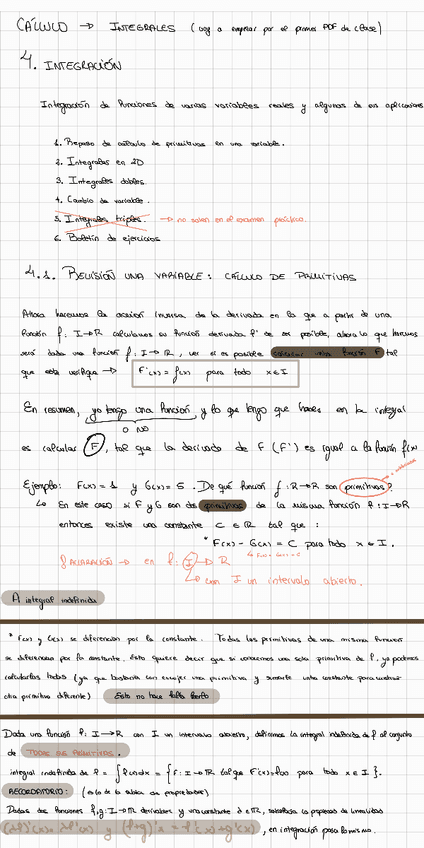 CÁLCULO → INTEGRALES (voy a empezar por el primer PDF de clase)
4. INTEGRACIÓN
Integración de funciones de varias variables reales y algunas de sus aplicaciones
1. Repaso de cálculo de primitivas en una variable.
2. Integrales en 2D
3. Integrales dobles
4. Cambio de variable.
5. Integrales triples. → no salen en el examen práctico.
6. Boletín de ejercicios
4.1. REVISIÓN UNA VARIABLE: CÁLCULO DE PRIMITIVAS
Ahora haremos la acción inversa de la derivada en la que a partir de una
función f: I→R calculamos su función derivada f' de ser posible, ahora lo que haremos
será dada una función f: I→R, ver si es posible calcular otra función F tal
que esta verifique → F'(x) = f(x) para todo x∈I
En resumen, yo tengo una función y lo que tengo que hacer en la integral
o no
es calcular F, tal que la derivada de F (F') es igual a la función f(x)
Ejemplo: F(x) = 1 y G(x) = 5. De qué función f: R→R son primitivas?
↳ En este caso si F y G son dos primitivas de la misma función f: I→R
entonces existe una constante C ∈ R tal que:
* F(x) - G(x) = C para todo x ∈ I.
ACLARACIÓN → en f: I → R
↳ con I un intervalo abierto.
Λ integral indefinida
* F(x) y G(x) se diferencian por la constante. Todas las primitivas de una misma función
se diferencian por la constante. Esto quiere decir que si conocemos una sola primitiva de f, ya podemos
calcularlas todas (ya que bastaría con coger una primitiva y sumarle una constante para obtener
otra primitiva diferente) Esto no hace falta
Dada una función f: I→R con I un intervalo abierto, definimos la integral indefinida de f al conjunto
de TODAS SUS PRIMITIVAS.
integral indefinida de f = ∫f(x)dx = {F: I→R tal que F'(x)=f(x) para todo x∈I}.
RECORDATORIO: (esto de la tabla de propiedades)
Dadas dos funciones f,g: I→R derivables y una constante λ∈R, satisfacía la propiedad de linealidad
(λf)'(x) = λf'(x) y (f+g)'x = f'(x)+g'(x), en integración pasa lo mismo.